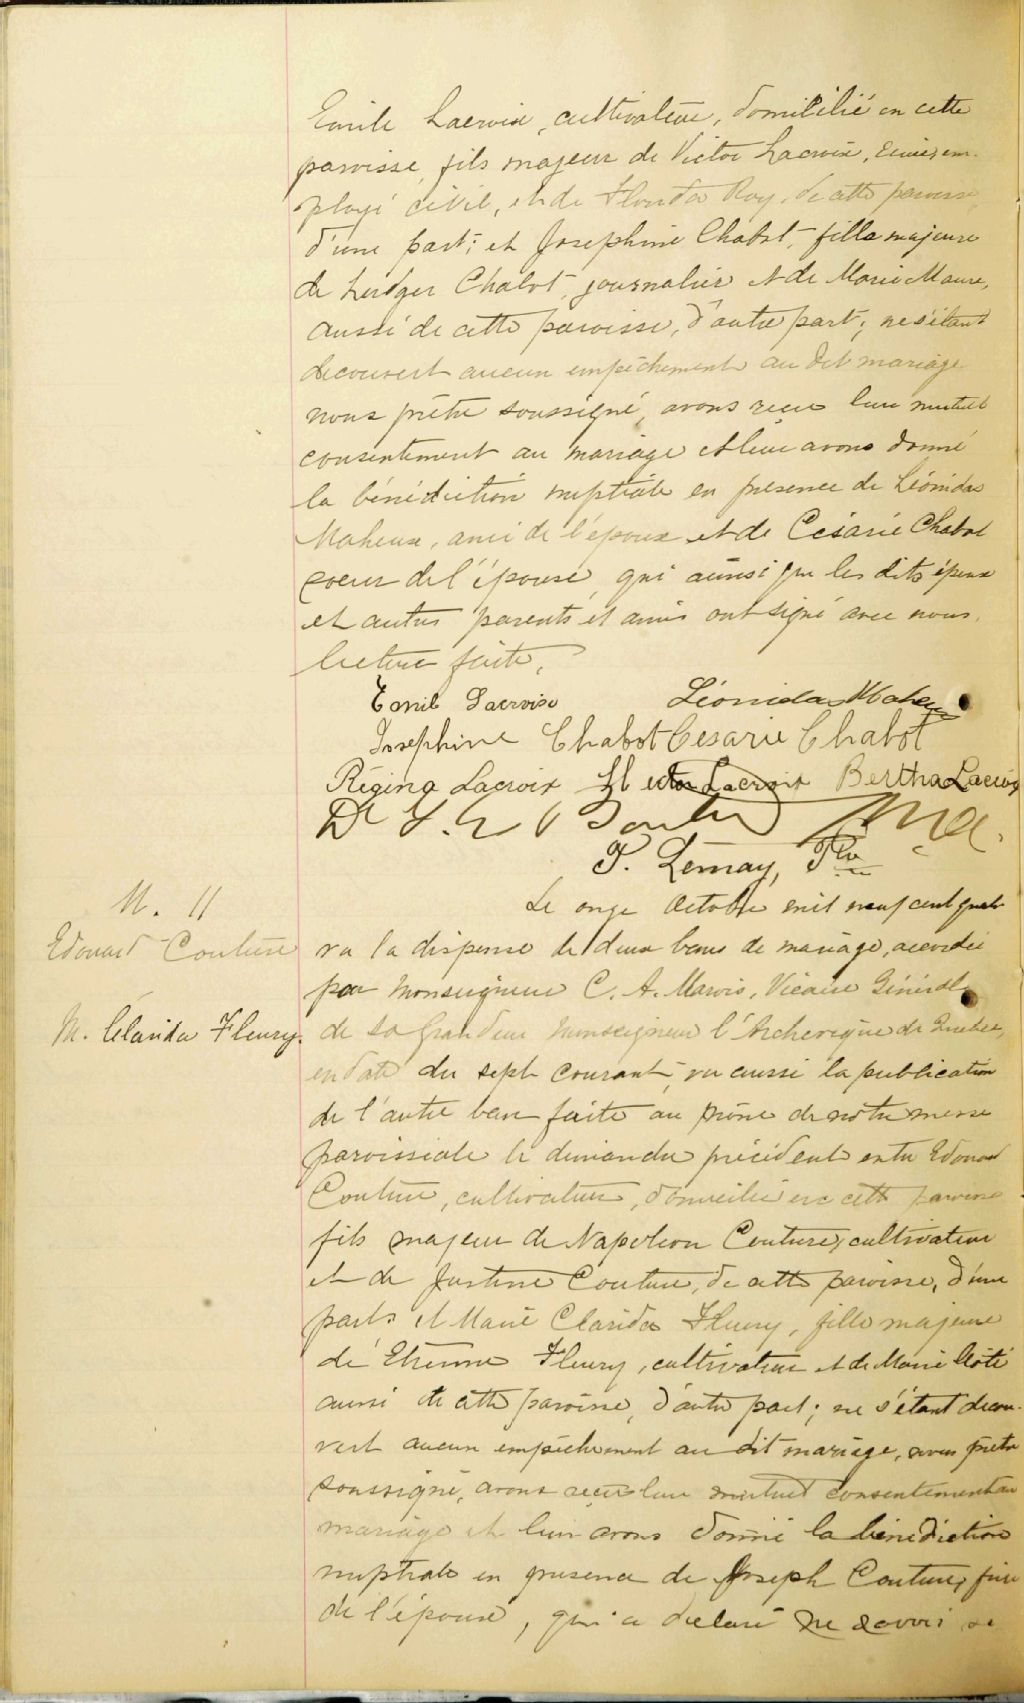 Emile Lacroix, cultivateur, domicilié en cette
paroisse, fils majeur de Victor Lacroix, em-
ployé civil, et de Florida Roy, de cette paroisse,
d'une part; et Joséphine Chabot, fille majeure
de Ludger Chabot, journalier et de Marie
aussi de cette paroisse, d'autre part; ne s'étant
découvert aucun empêchement au dit mariage
nous prêtre soussigné, avons reçu leur mutuel
consentement au mariage et leur avons donné
la bénédiction nuptiale en présence de Léonidas
Maheux, ami de l'époux et de Césarie Chabot
soeur de l'épouse, qui ainsi que les dits époux
et autres parents et amis ont signé avec nous.
lecture faite.
Emile Lacroix Léonidas Maheux
Josephine Chabot Cesarie Chabot
Régina Lacroix Lacroix Bertha Lacroix
Dr
P. Lemay, Ptre
M. 11
Edouard Couture
M. Clarida Fleury.
Le onze Octobre mil neuf cent quatre
vu la dispense de deux bans de mariage, accordée
par Monseigneur C. A. Marois, Vicaire Général
de Sa Grandeur Monseigneur l'Archevêque de Québec,
en date du sept courant, vu aussi la publication
de l'autre ban faite au prône de notre messe
paroissiale le dimanche précédent entre Edouard
Couture, cultivateur, domicilié en cette paroisse
fils majeur de Napoléon Couture, cultivateur
et de Justine Couture, de cette paroisse, d'une
part; et Marie Clarida Fleury, fille majeure
de Etienne Fleury, cultivateur et de Marie Côté
aussi de cette paroisse, d'autre part; ne s'étant décou-
vert aucun empêchement au dit mariage, nous prêtre
soussigné, avons reçu leur mutuel consentement au
mariage et leur avons donné la bénédiction
nuptiale en présence de Joseph Couture,
de l'épouse, qui a déclaré ne savoir